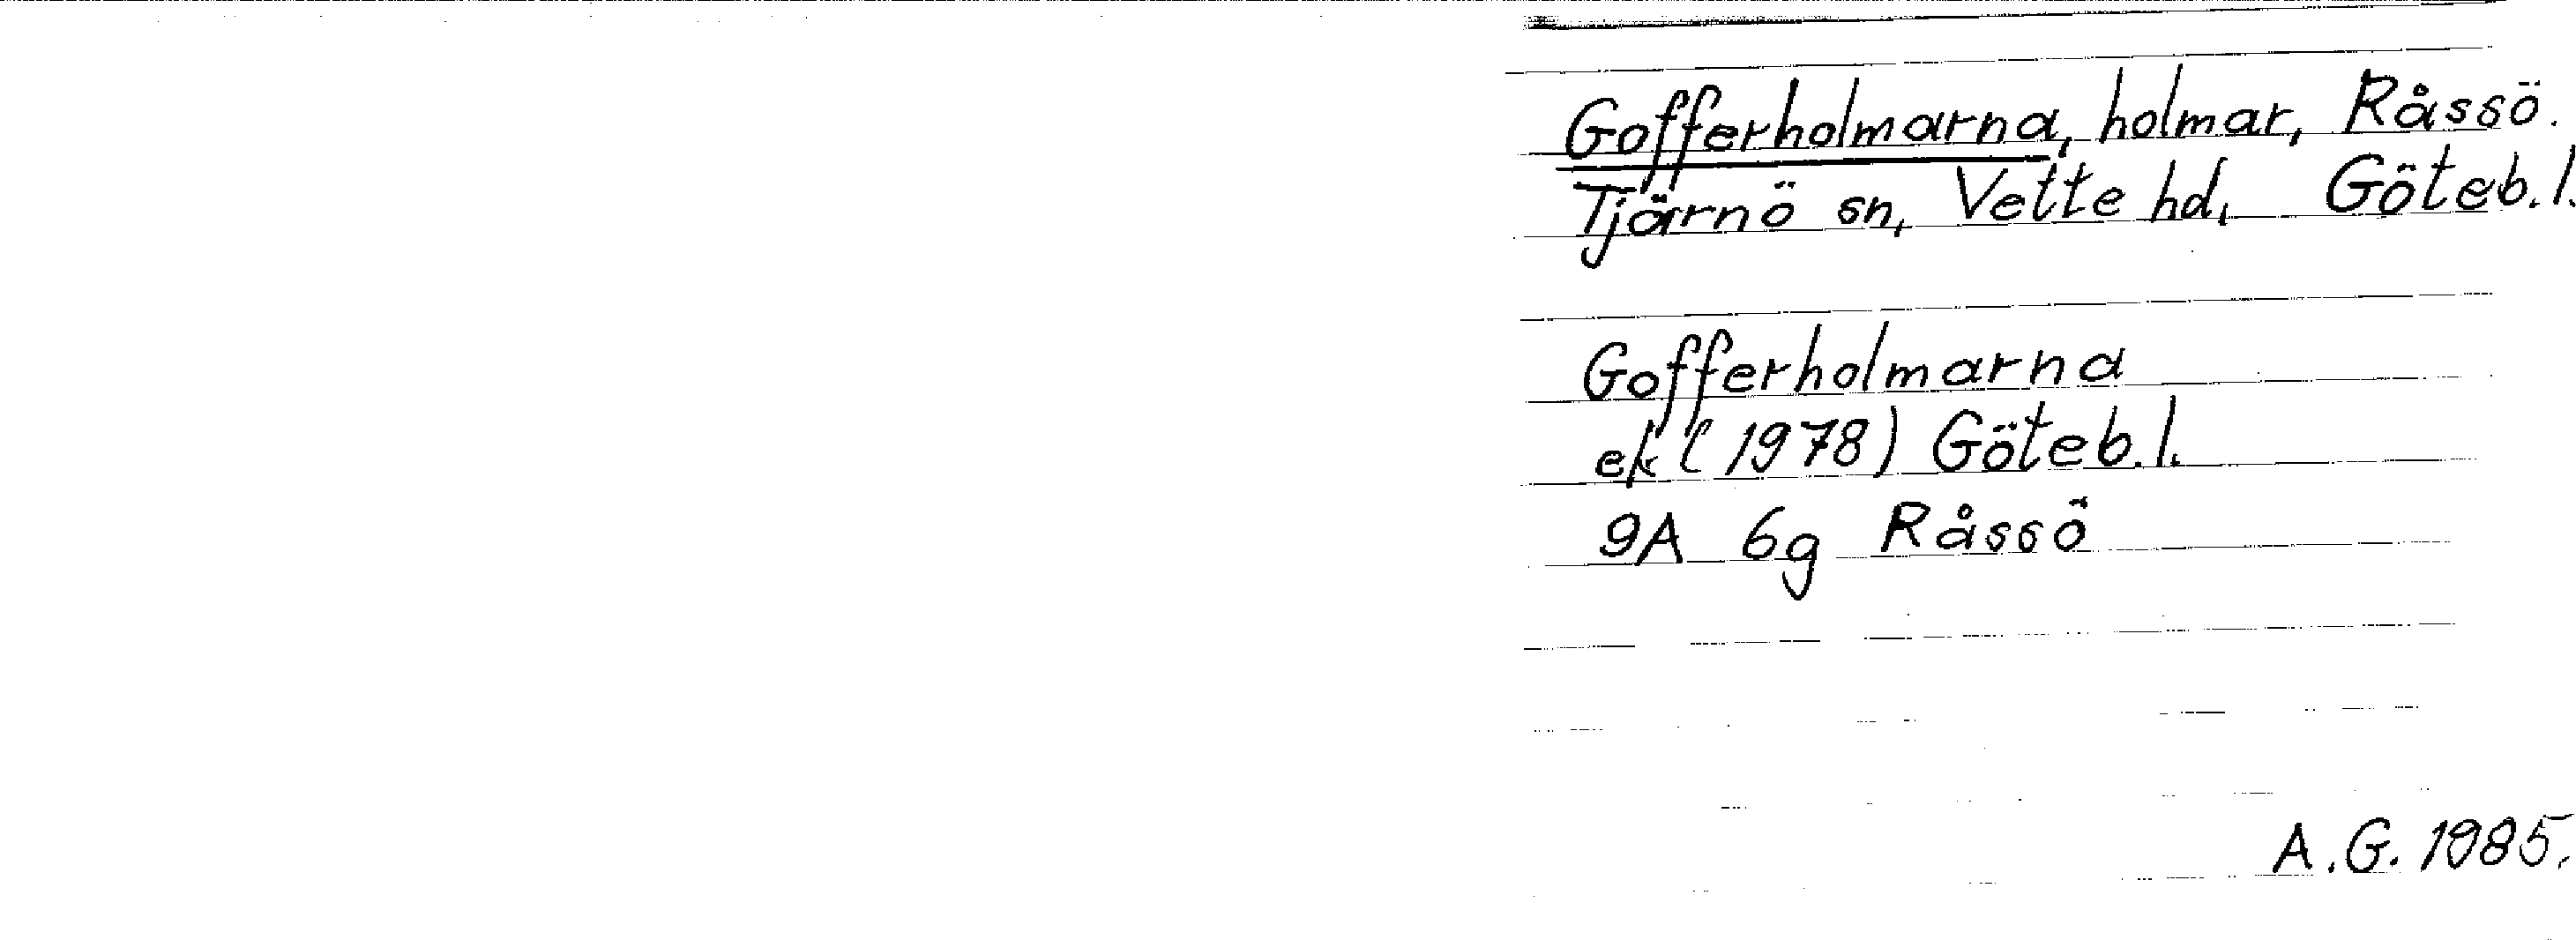 Gofferholmarna, holmar, Råssö.
Tjärnö sn, Vette hd, Göteb.l.
Gofferholmarna
ek (1978) Göteb.l.
9A 6g Råssö
A.G. 1985.